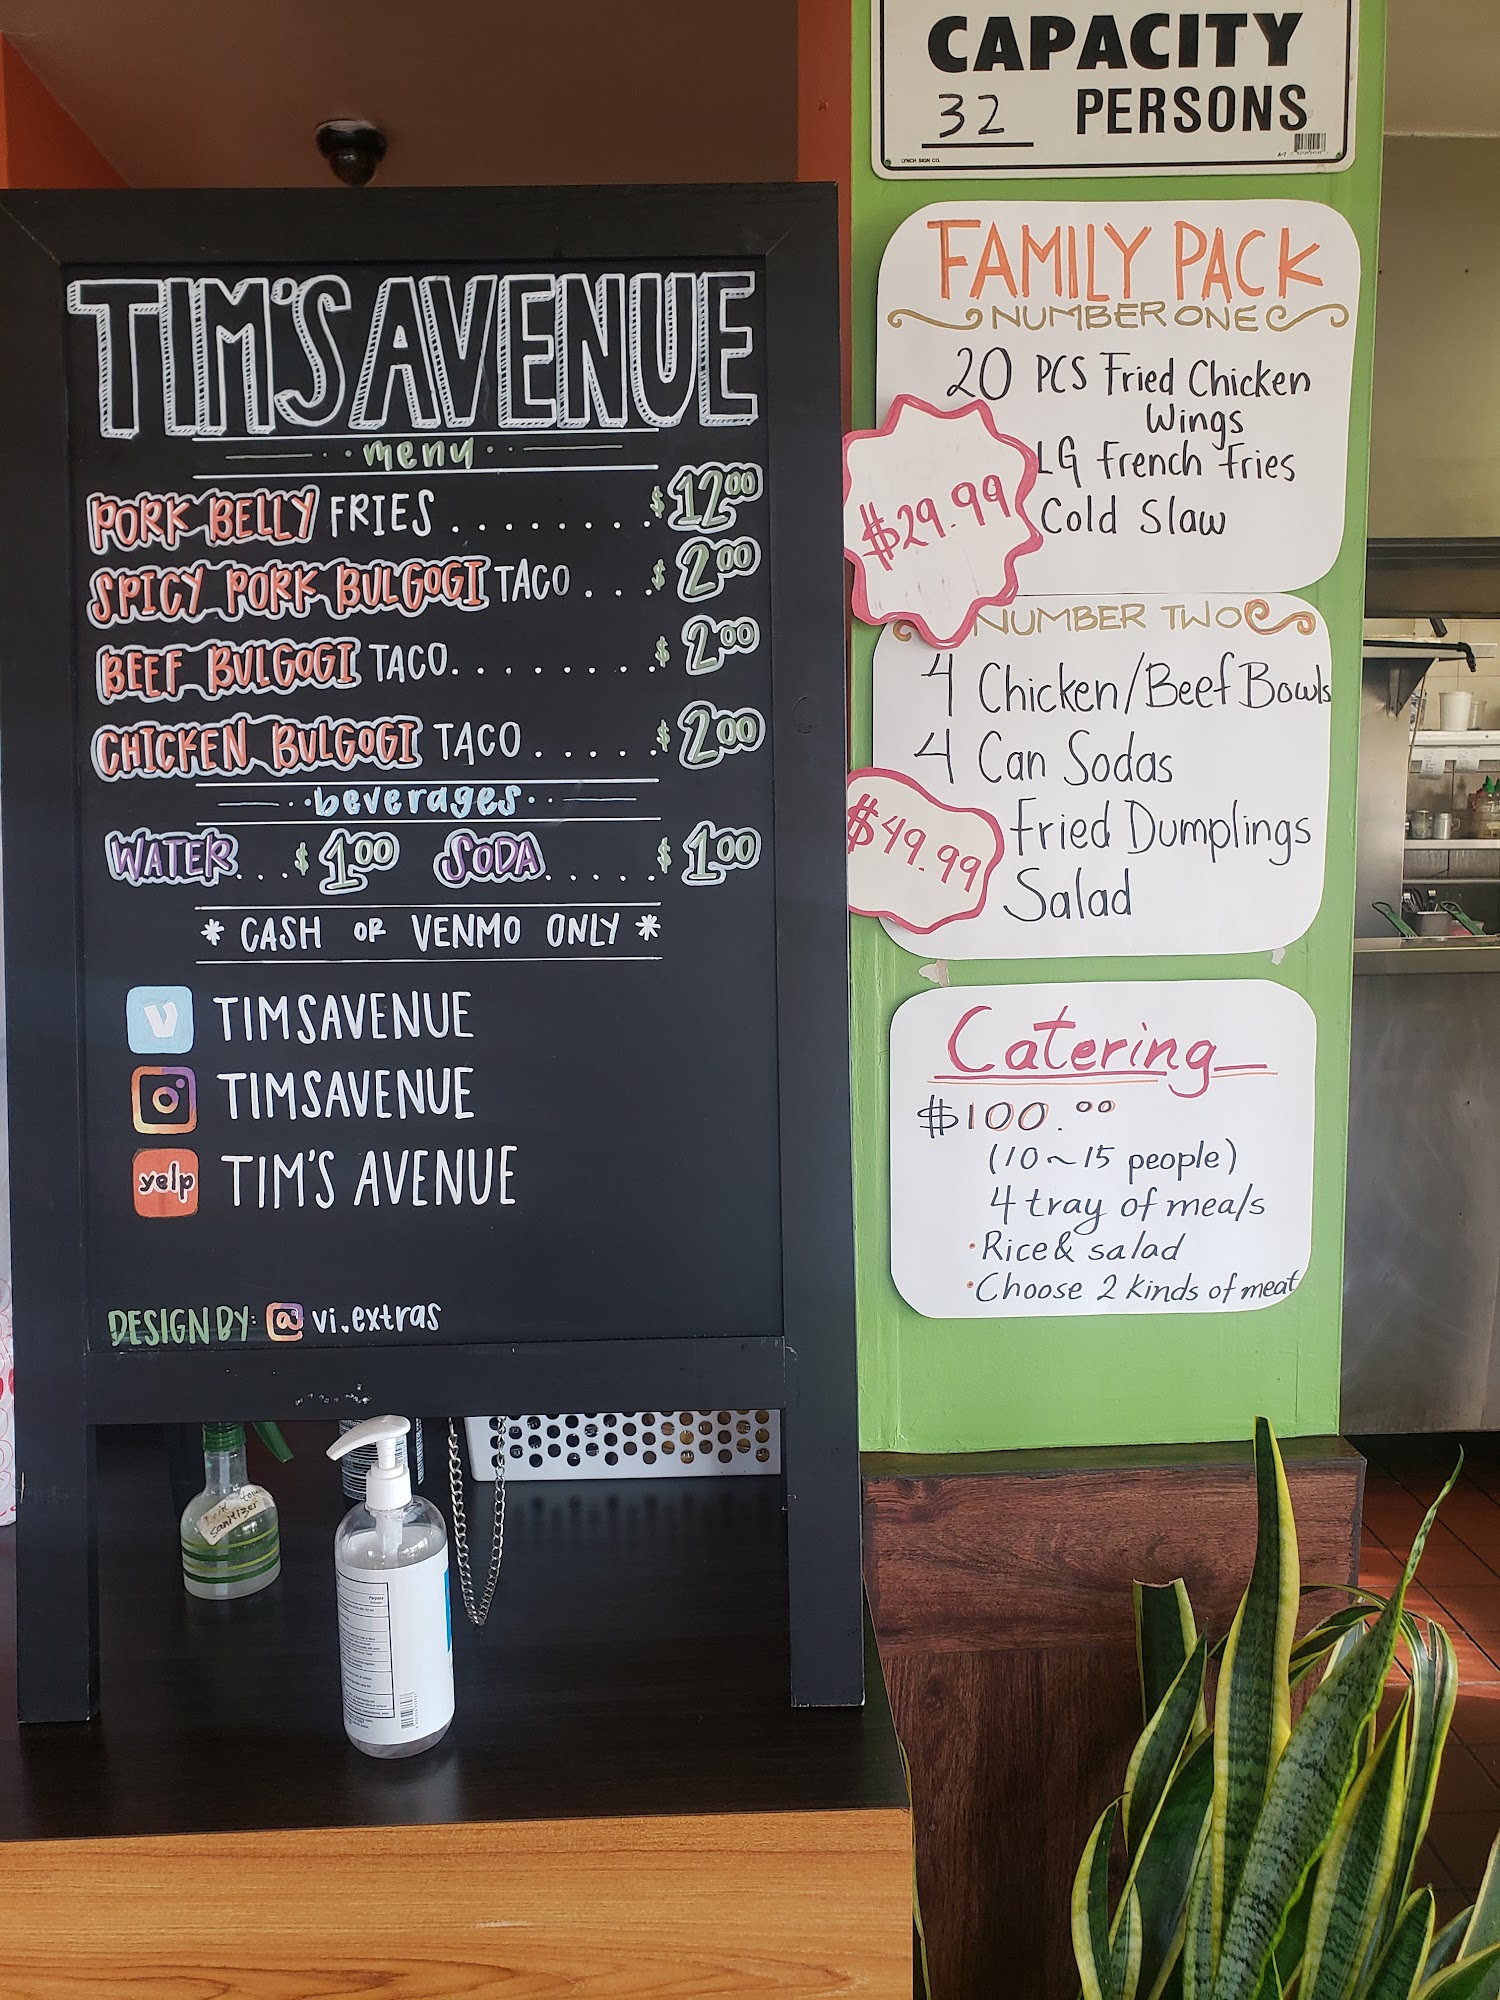 CAPACITY
32 PERSONS
LYNCH SIGN CO.
TIM'S AVENUE
menu
PORK BELLY FRIES . . . . . . . . $12.00
SPICY PORK BULGOGI TACO . . . $2.00
BEEF BULGOGI TACO. . . . . . . . $2.00
CHICKEN BULGOGI TACO . . . . . $2.00
beverages
WATER. . . $1.00 SODA. . . . . $1.00
* CASH OR VENMO ONLY *
V TIMSAVENUE
TIMSAVENUE
yelp TIM'S AVENUE
DESIGN BY: @ vi.extras
FAMILY PACK
NUMBER ONE
20 PCS Fried Chicken
Wings
LG French Fries
Cold Slaw
$29.99
NUMBER TWO
4 Chicken/Beef Bowls
4 Can Sodas
Fried Dumplings
Salad
$49.99
Catering
$100.00
(10~15 people)
4 tray of meals
• Rice & salad
• Choose 2 kinds of meat
sanitizer
Purpose